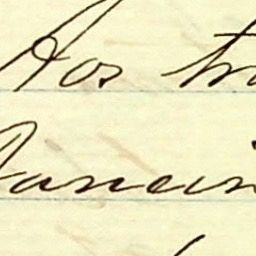 Aos tr
Janeir